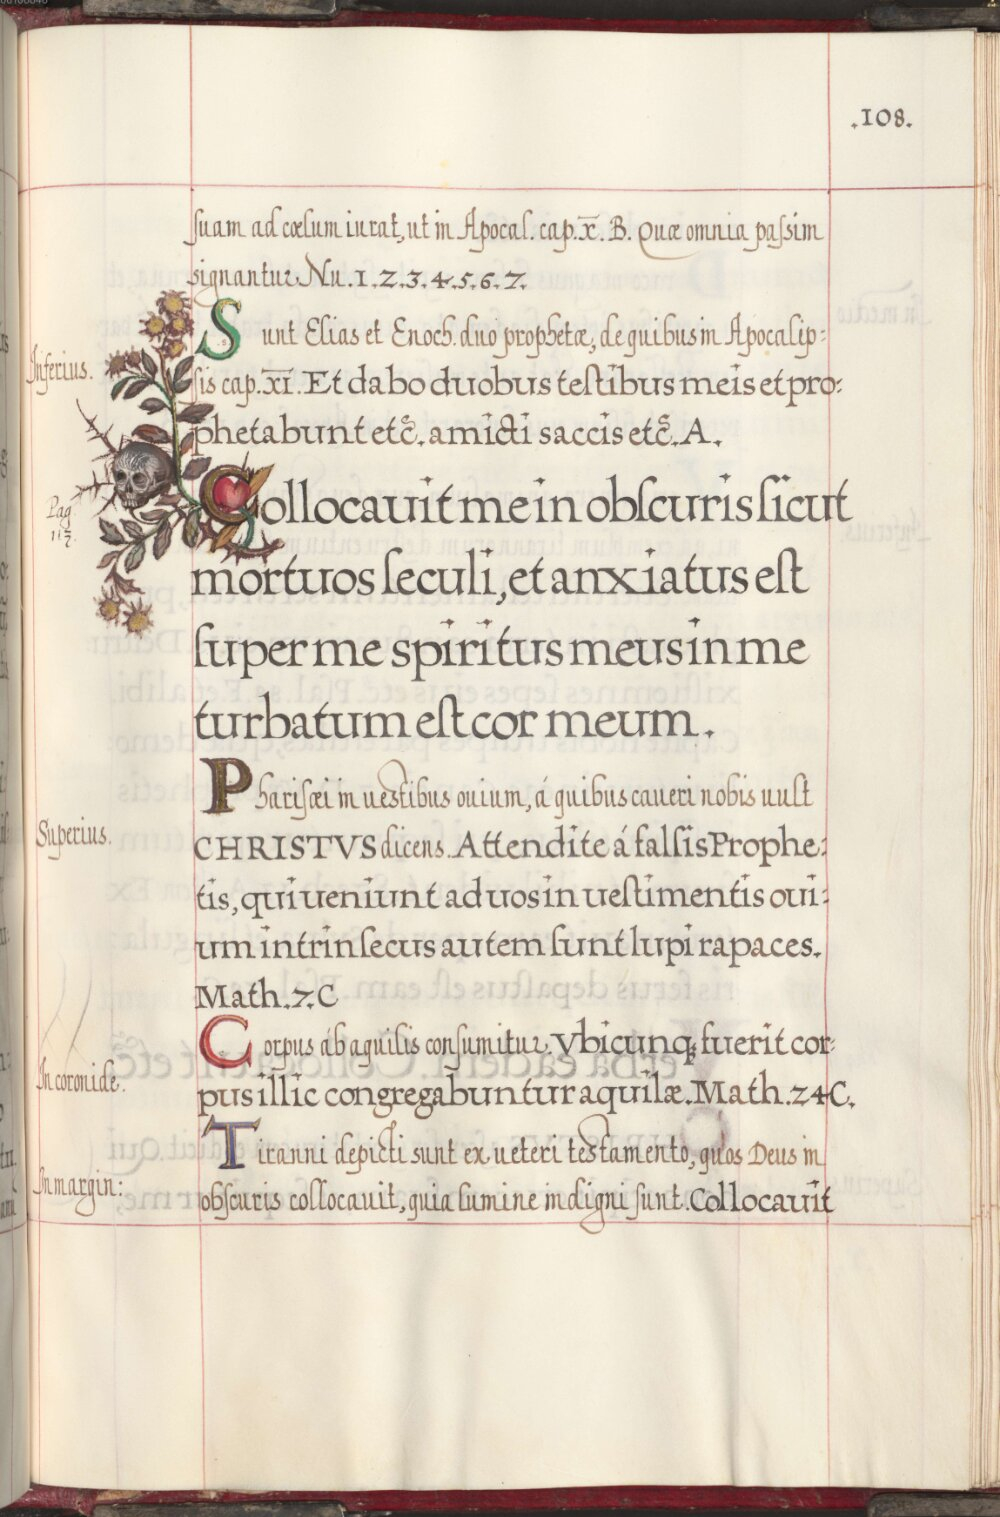 .108.
suam ad cœlum iurat, ut in Apocal. cap. x̅. B. Quæ omnia passim
signantur Nu. 1. 2. 3. 4. 5. 6. 7.
Inferius.
Sunt Elias et Enoch. duo prophetæ, de quibus in Apocalip:
sis cap. x̅I̅. Et dabo duobus testibus meis et pro:
phetabunt etc̃. amicti saccis etc̃. A.
Pag
117.
Collocavit me in obscuris sicut
mortuos seculi, et anxiatus est
super me spiritus meus in me
turbatum est cor meum.
Superius.
Pharisæi in uestibus ouium, á quibus caueri nobis uult
CHRISTVS dicens. Attendite á falsis Prophe:
tis, qui ueniunt ad uos in uestimentis oui:
um intrinsecus autem sunt lupi rapaces.
Math. 7. C
In coronide.
Corpus ab aquilis consumitur. Vbicunq; fuerit cor:
pus illic congregabuntur aquilæ. Math. 24 C.
In margin:
Tiranni depicti sunt ex ueteri testamento, quos Deus in
obscuris collocauit, quia lumine indigni sunt. Collocauit